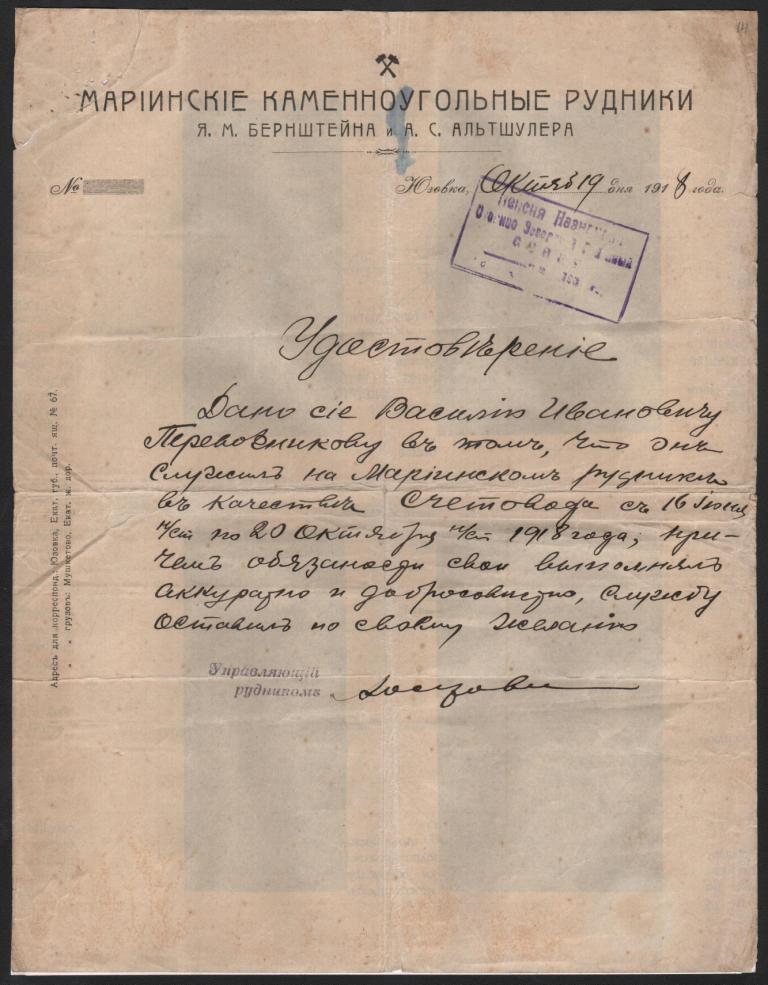 МАРІИНСКІЕ КАМЕННОУГОЛЬНЫЕ РУДНИКИ
Я. М. БЕРНШТЕЙНА и А. С. АЛЬТШУЛЕРА
№
Юзовка, Октяб 19 дня 1918 года.
Пенсия
Удостовѣреніе
Дано сіе Василію Ивановичу
Перевозникову въ томъ, что онъ
служилъ на Маріинскомъ рудникѣ
въ качествѣ счетовода съ 16
н/ст по 20 Октября н/ст 1918 года, при-
чемъ обязаности свои выполнялъ
аккуратно и добросовистно, службу
оставилъ по своему желанію
Управляющій
рудникомъ
Адресъ для корреспонд.: Юзовка, Екат. губ., почт. ящ. № 67.
„ „ грузовъ: Мушкетово, Екат. ж. дор.